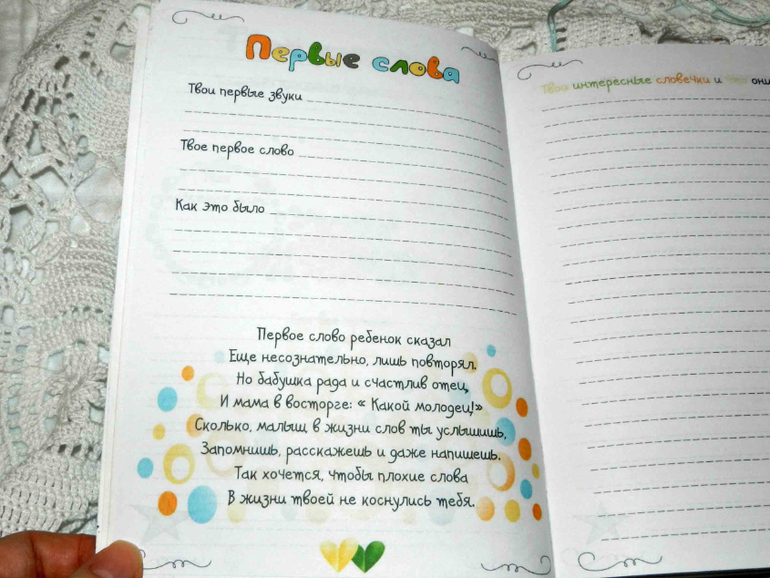 Первые слова
Твои первые звуки
Твое первое слово
Как это было
Первое слово ребенок сказал
Еще несознательно, лишь повторял.
Но бабушка рада и счастлив отец,
И мама в восторге: « Какой молодец!»
Сколько, малыш, в жизни слов ты услышишь,
Запомнишь, расскажешь и даже напишешь.
Так хочется, чтобы плохие слова
В жизни твоей не коснулись тебя.
Твои интересные словечки и что они